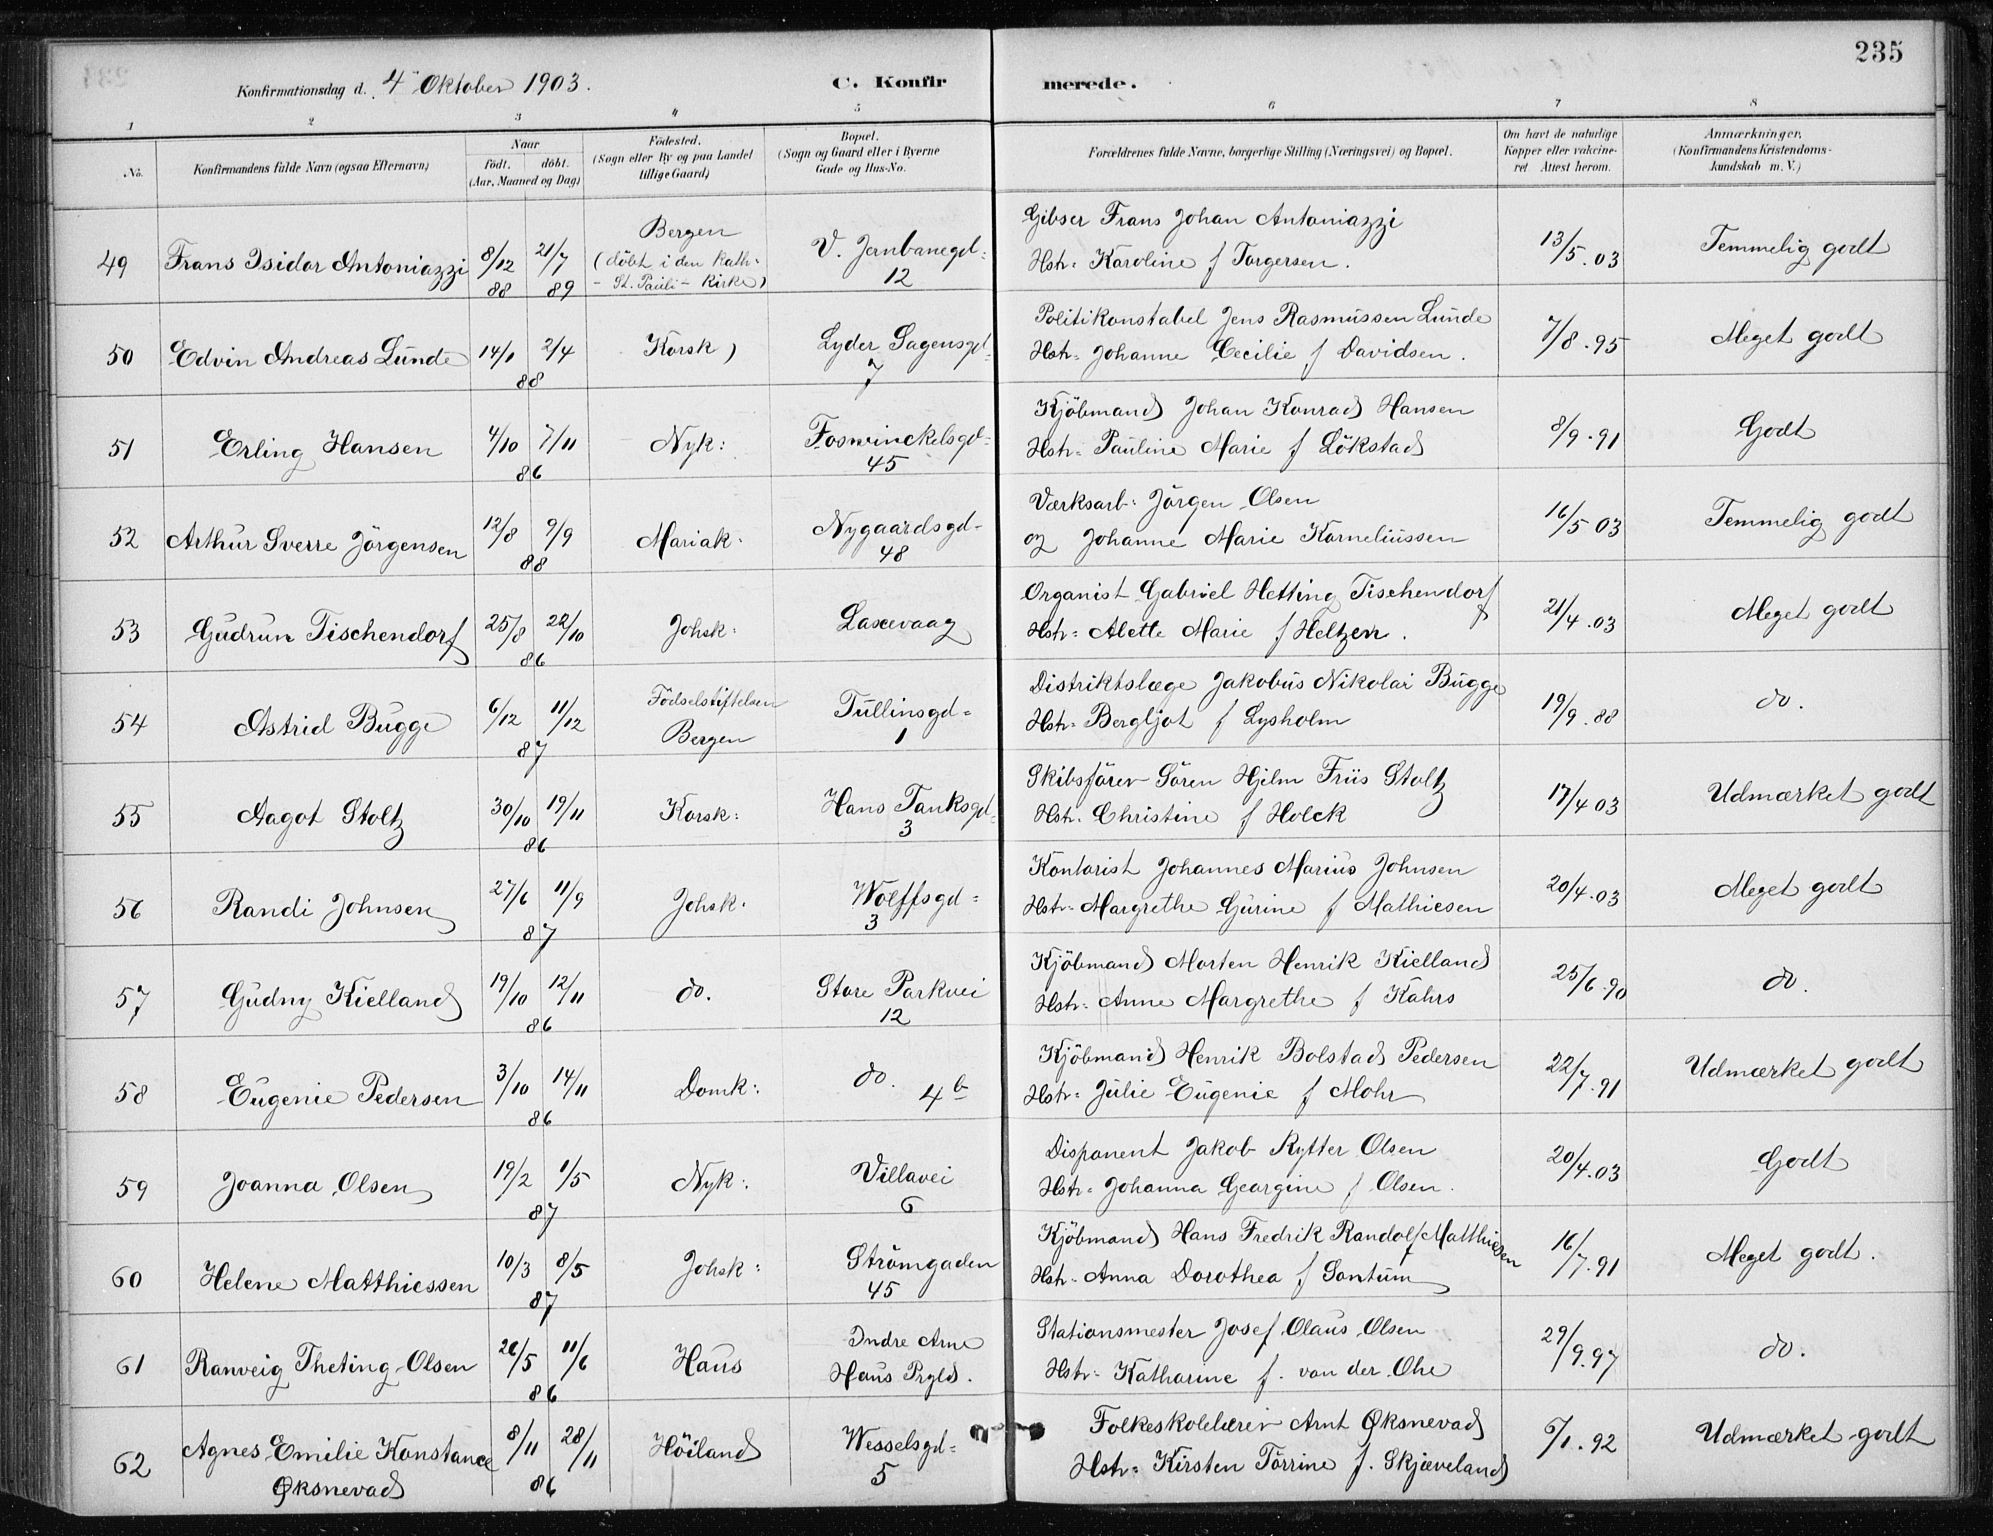 235
Konfirmationsdag d. 4 Oktober 1903.
C. Konfir
merede.
1 2 3 4 5 6 7 8
No.
Konfirmandens fulde Navn (ogsaa Efternavn)
Naar
födt. döbt.
(Aar, Maaned og Dag)
Födested.
(Sogn eller By og paa Landet
tillige Gaard)
Bopæl.
(Sogn og Gaard eller i Byerne
Gade og Hus-No.
Forældrenes fulde Navne, borgerlige Stilling (Næringsvei) og Bopæl.
Om havt de naturlige
Kopper eller vakcine-
ret Attest herom.
Anmærkninger.
(Konfirmandens Kristendoms-
kundskab m. V.)
49 Frans Isidor Antoniazzi 8/12 88 21/7 89
Bergen
(döbt i den kath:
- St. Pauli - Kirke)
V. Jernbanegd-
12
Gibser Frans Johan Antoniazzi
Hstr: Karoline f Torgersen.
13/5.03 Temmelig godt
50 Edvin Andreas Lunde 14/1 2/4 88 Korsk)
Lyder Sagensgd-
7
Politikonstabel Jens Rasmussen Lunde
Hstr- Johanne Cecilie f Davidsen.
7/8.95 Meget godt
51 Erling Hansen 4/10 7/11 86 Nyk:
Foswinckelsgd-
45
Kjöbmand Johan Konrad Hansen
Hstr- Pauline Marie f Lökstad
8/9.91 Godt
52 Arthur Sverre Jörgensen 12/8 9/9 88 Mariak:
Nygaardsgd-
48
Værksarb: Jörgen Olsen
og Johanne Marie Korneliussen
16/5 03 Temmelig godt
53 Gudrun Tischendorf 25/8 22/10 86 Johsk: Laxevaag
Organist Gabriel Hetting Tischendorf
Hstr- Alette Marie f Heltzen.
21/4.03 Meget godt
54 Astrid Bugge 6/12 11/12 87
Födselstiftelsen
Bergen
Tullinsgd-
1
Distriktslæge Jakobus Nikolai Bugge
Hstr- Bergljot f Lysholm
19/9.88 do.
55 Aagot Stoltz 30/10 19/11 86 Korsk:
Hans Tanksgd-
3
Skibsförer Sören Hjelm Friis Stoltz
Hstr. Christine f Holck
17/4 03 Udmærket godt
56 Randi Johnsen 27/6 11/9 87 Johsk.
Wolffsgd-
3
Kontorist Johannes Marius Johnsen
Hstr- Margrethe Gurine f Mathiesen
20/4.03 Meget godt
57 Gudny Kielland 19/10 12/11 86 do.
Store Parkvei
12
Kjöbmand Morten Henrik Kielland
Hstr- Anne Margrethe f Kahrs
25/6.90 do.
58 Eugenie Pedersen 3/10 14/11 86 Domk:
do. 4b
Kjöbmand Henrik Bolstad Pedersen
Hstr- Julie Eugenie f Mohr
22/7.91 Udmærket godt
59 Joanna Olsen 19/2 1/5 87 Nyk:
Villavei
6
Disponent Jakob Rytter Olsen
Hstr- Johanna Georgine f Olsen.
20/4.03 Godt
60 Helene Matthiessen 10/3 8/5 87 Johsk:
Strömgaden
45
Kjöbmand Hans Fredrik Randolf Matthiesen
Hstr- Anna Dorothea f Sontum
16/7.91 Meget godt.
61 Ranveig Theting Olsen 26/5 11/6 86 Haus
Indre Arne
Haus Prgld.
Stationsmester Josef Olaus Olsen
Hstr- Katharine f. von der Ohe
29/9.97 do.
62 Agnes Emilie Konstance
Øksnevad
8/11 28/11 86 Höiland
Wesselsgd-
5
Folkeskolelærer Arnt Øksnevad
Hstr- Kirsten Törrine f. Skjæveland
6/1.92 Udmærket godt